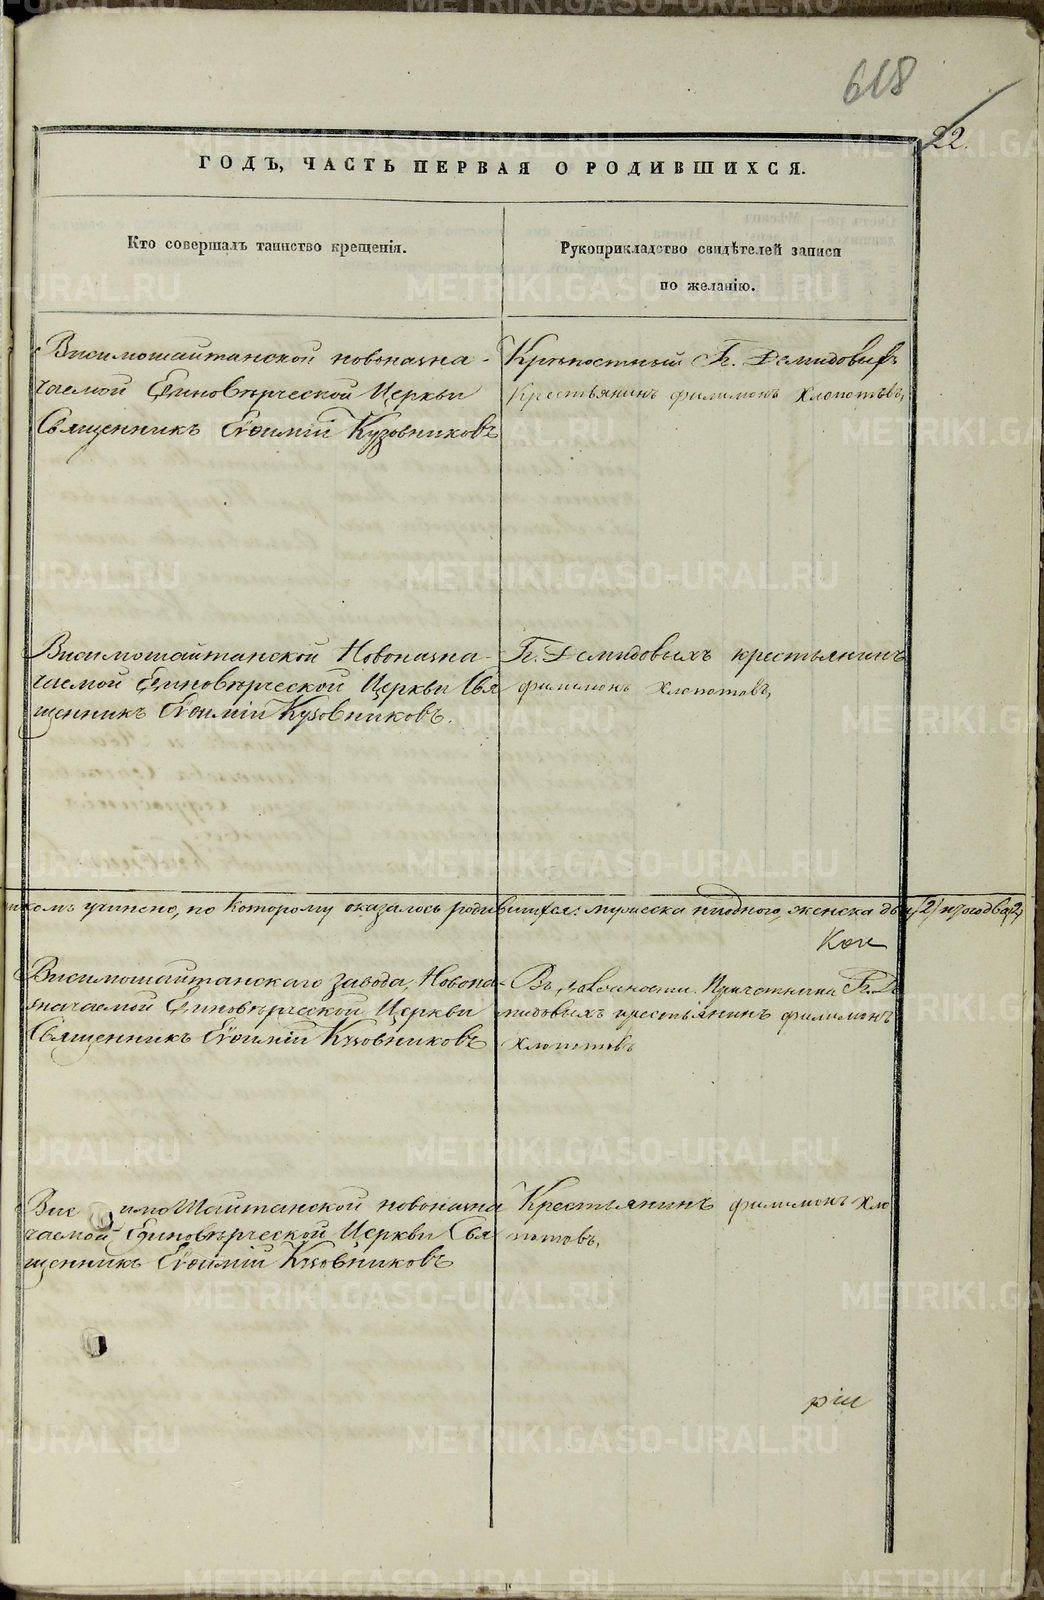 618
22.
ГОДЪ, ЧАСТЬ ПЕРВАЯ О РОДИВШИХСЯ.
Кто совершалъ таинство крещенія.
Рукоприкладство свидѣтелей записи
по желанію.
Висимошайтанской новоназна-
чаемой Единовѣрческой Церкви
Священникъ Еѵѳимій Кузовниковъ
Крѣпостный Г. Демидовыхъ
Крестьянинъ филимонъ хлопотовъ,
Висимошайтанской Новоназна-
чаемой Единовѣрческой Церкви Свя
щенникъ Еѵѳимій Кузовниковъ.
Гг. Демидовыхъ крестьянинъ
филимонъ хлопотовъ,
учинено, по которому оказалось родившихся: мужеска ниодного, женска двѣ /2/ итого два /2/
Кон
Висимошайтанскаго завода, Новона-
значаемой Единовѣрческой Церкви
Священникъ Еѵѳимій Кузовниковъ
Въ Гг. Де
мидовыхъ крестьянинъ филимонъ
хлопотовъ
Вис имоШайтанской новоназна
чаемой Единовѣрческой Церкви Свя
щенникъ Еѵѳимій Кузовниковъ
Крестьянинъ филимонъ хло
потовъ,
ріи
METRIKI.GASO-URAL.RU